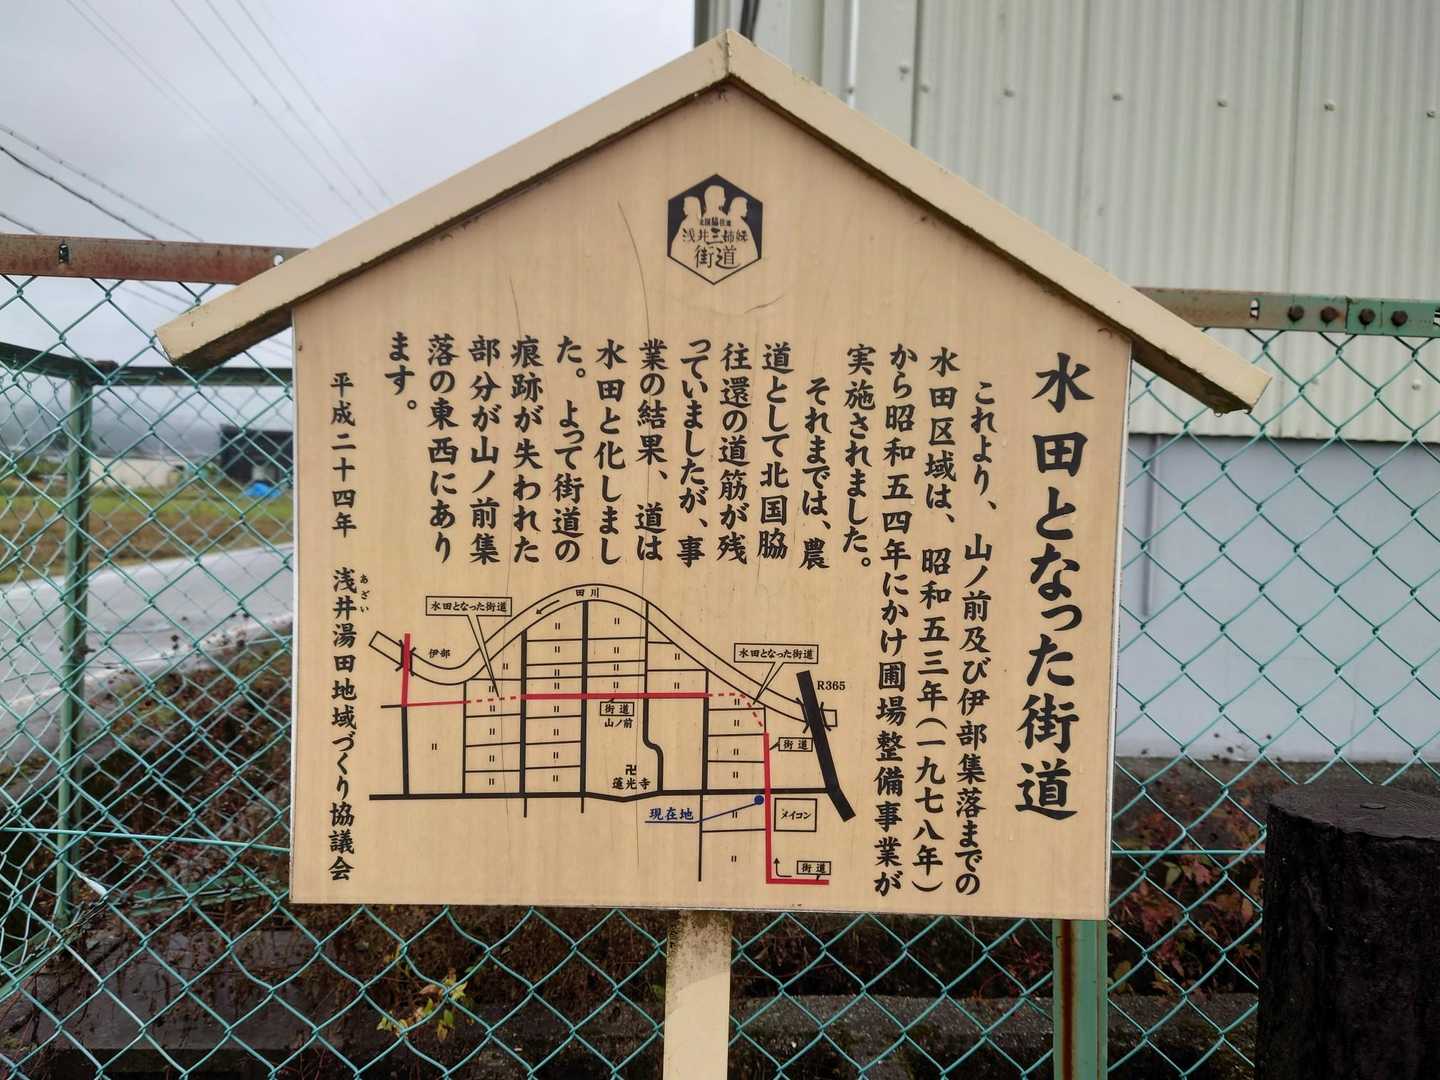 北国脇往還
浅井三姉妹
街道
水田となった街道
これより、山ノ前及び伊部集落までの
水田区域は、昭和五三年(一九七八年)
から昭和五四年にかけ圃場整備事業が
実施されました。
それまでは、農
道として北国脇
往還の道筋が残
っていましたが、事
業の結果、道は
水田と化しまし
た。よって街道の
痕跡が失われた
部分が山ノ前集
落の東西にあり
ます。
平成二十四年 浅井湯田地域づくり協議会
あざい
田川
水田となった街道
伊部
水田となった街道
R365
街道
山ノ前
街道
卍
蓮光寺
現在地
メイコン
街道